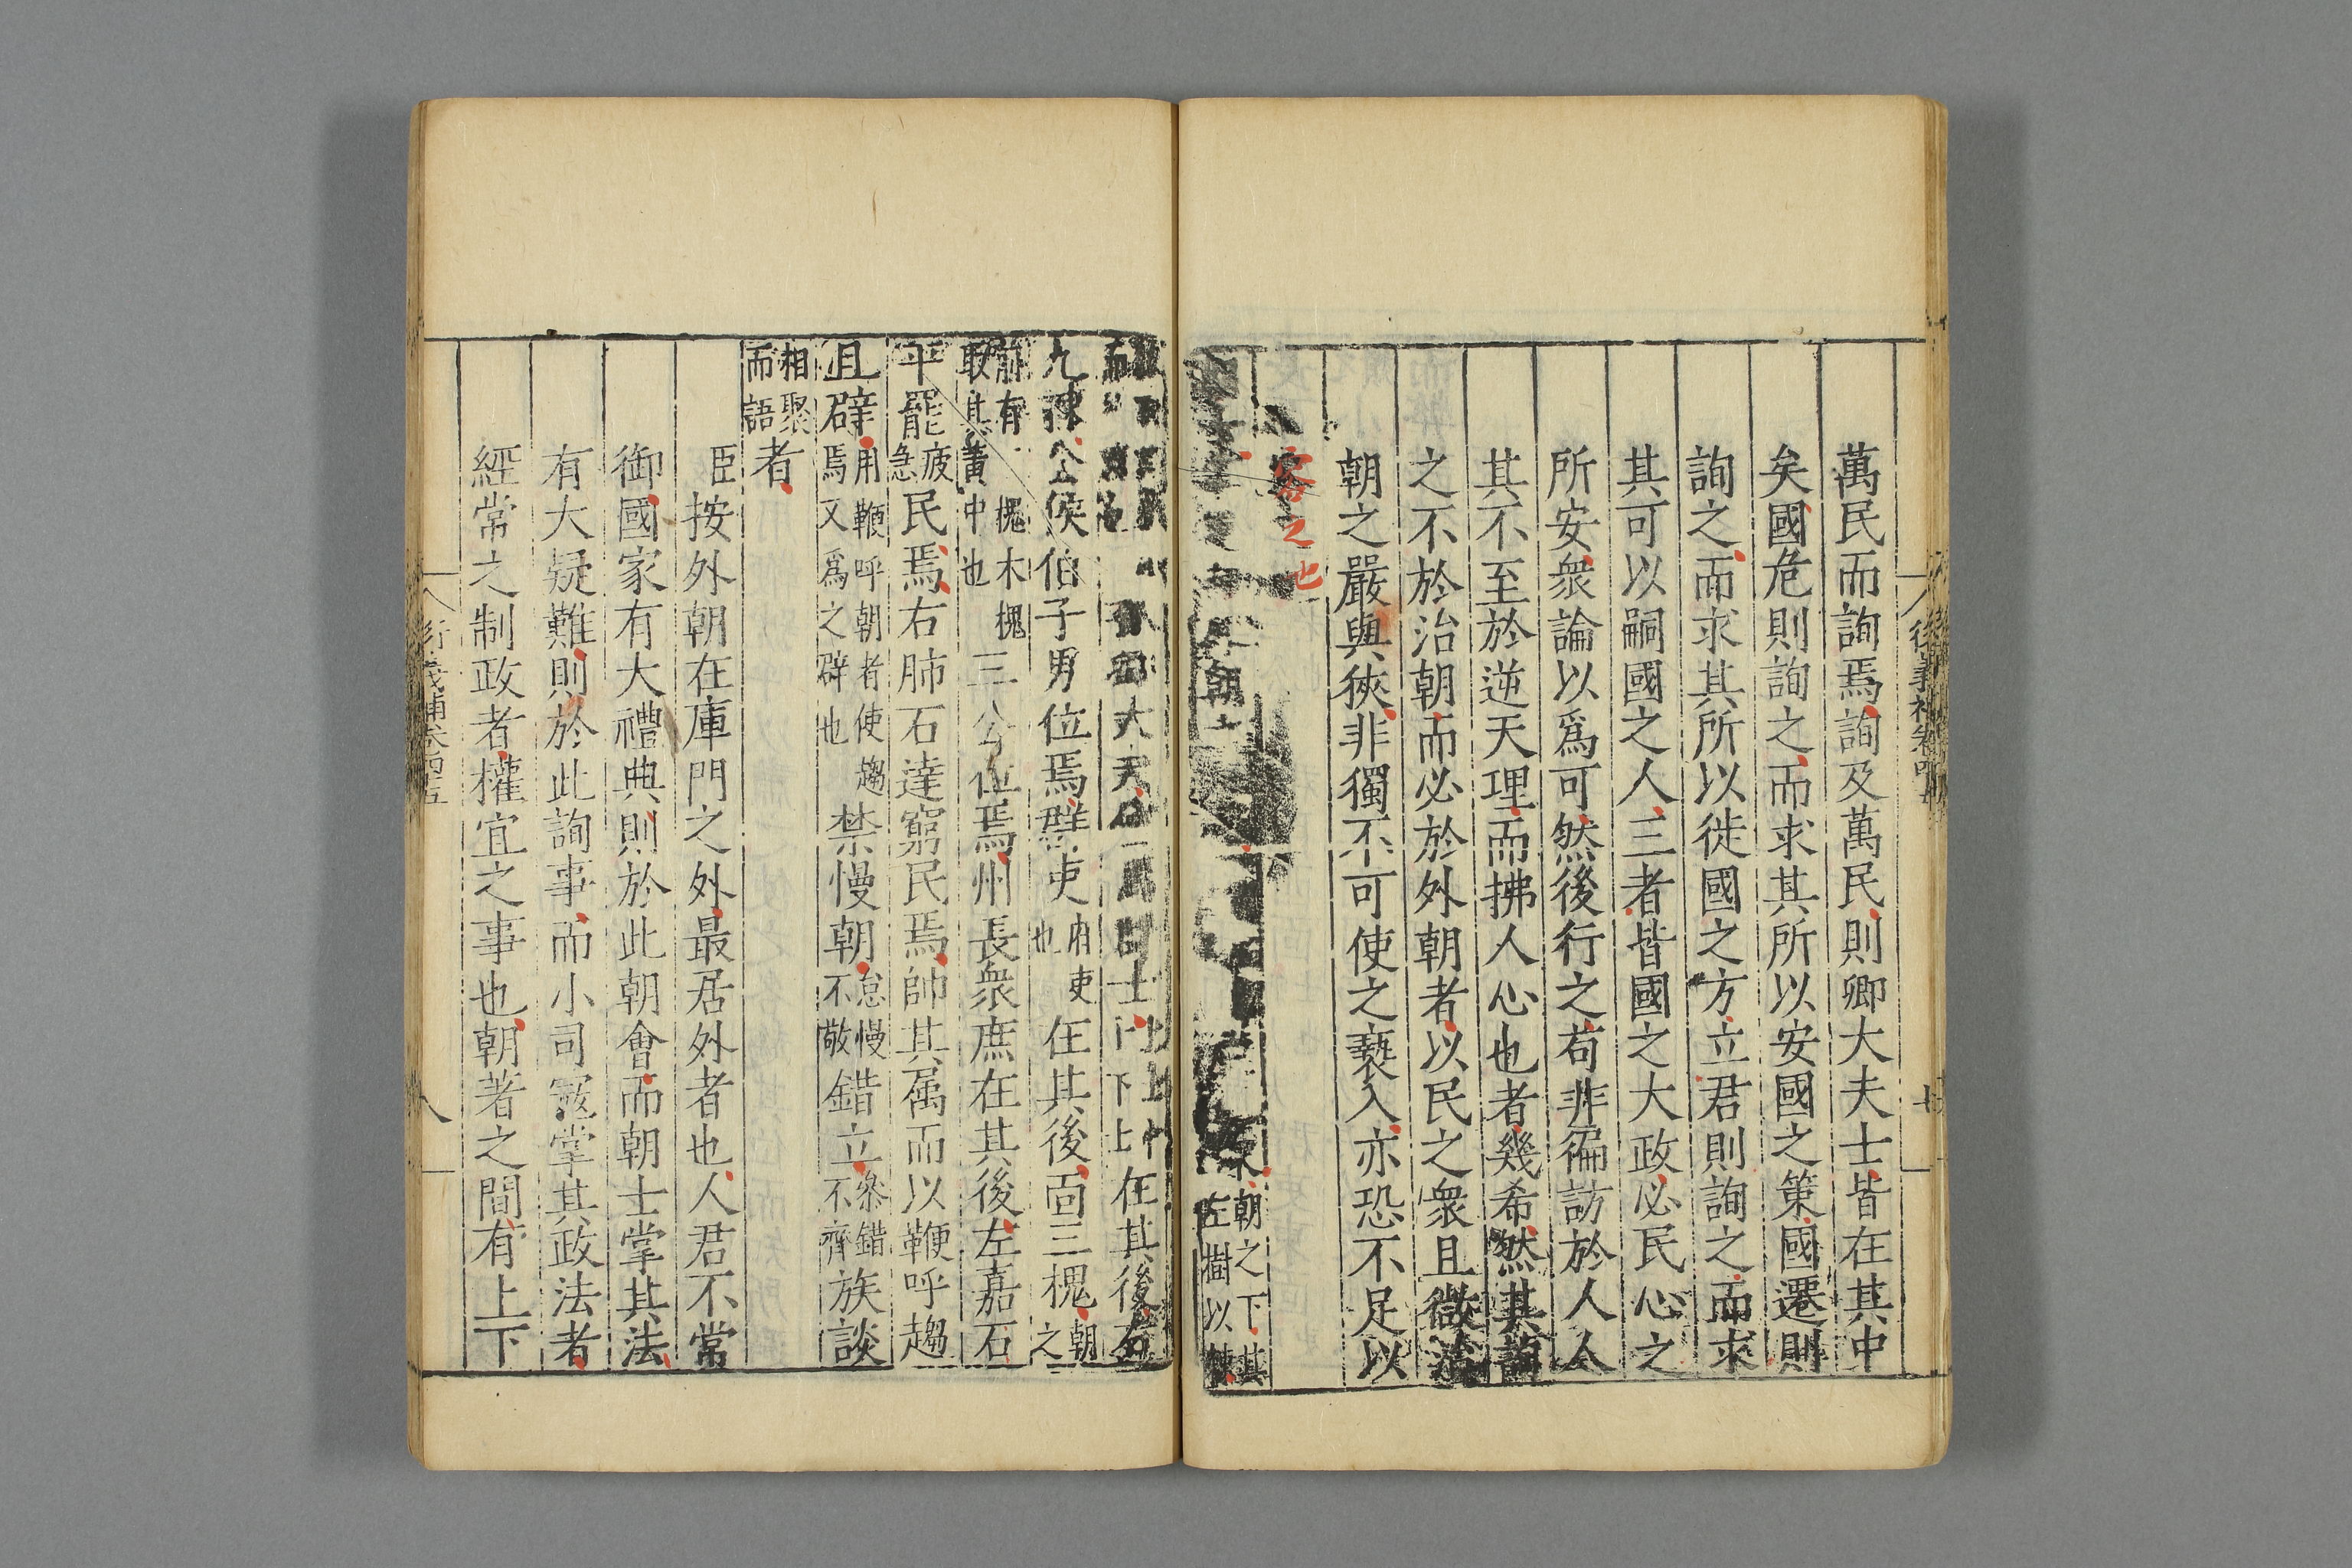 萬民而詢焉詢及萬民則卿大夫士皆在其中
矣國危則詢之而求其所以安國之策國遷則
詢之而求其所以徙國之方立君則詢之而求
其可以嗣國之人三者皆國之大政必民心之
所安衆論以爲可然後行之苟非徧訪於人人
其不至於逆天理而拂人心也者幾希然其詢
之不於治朝而必於外朝者以民之衆且微治
朝之嚴與狹非獨不可使之褻入亦恐不足以
容之也
朝
朝之下其
左樹以棘
大夫
士
在其後右
九棘公侯伯子男位焉群吏
府吏
也
在其後面三槐
朝
之
前有槐木槐
取其黃中也
三公位焉州長衆庶在其後左嘉石
平罷
疲
急
民焉右肺石達窮民焉帥其属而以鞭呼趨
且辟
用鞭呼朝者使趨
焉又爲之辟也
禁慢朝
怠慢
不敬
錯立
叅錯
不齊
族談
相聚
而語
者
臣按外朝在庫門之外最居外者也人君不常
御國家有大禮典則於此朝會而朝士掌其法
有大疑難則於此詢事而小司寇掌其政法者
經常之制政者權宜之事也朝著之間有上下